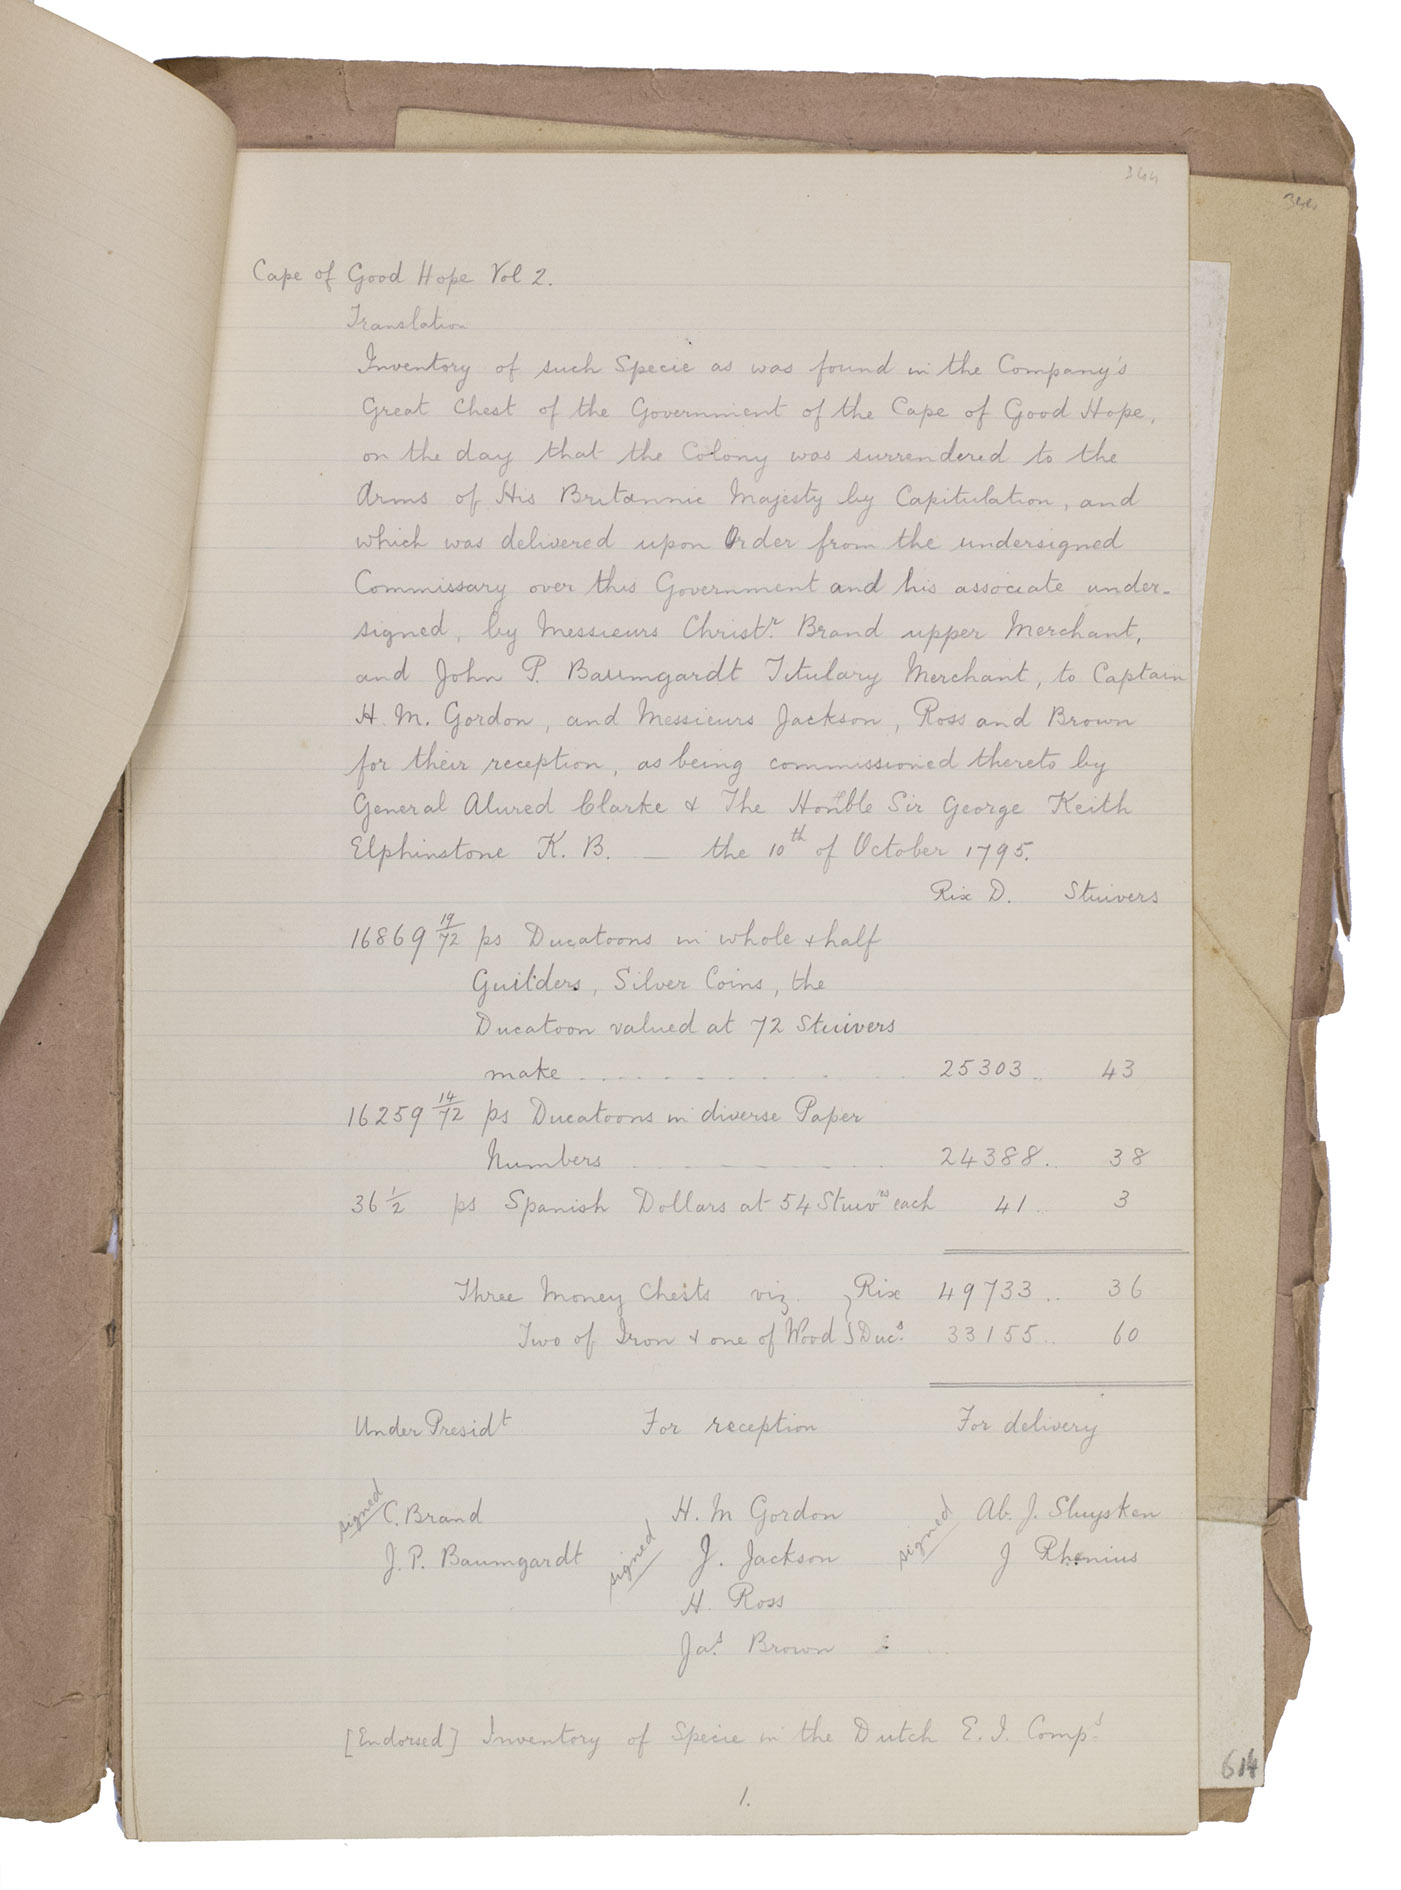 344
344
Cape of Good Hope Vol 2.
Translation
Inventory of such Specie as was found in the Company's
Great Chest of the Government of the Cape of Good Hope,
on the day that the Colony was surrendered to the
Arms of His Britannic Majesty by Capitulation, and
which was delivered upon Order from the undersigned
Commissary over this Government and his associate under-
signed, by Messieurs Christr. Brand upper Merchant,
and John P. Baumgardt Titulary Merchant, to Captain
H. M. Gordon, and Messieurs Jackson, Ross and Brown
for their reception, as being commissioned thereto by
General Alured Clarke & The Honble Sir George Keith
Elphinstone K. B. — the 10th of October 1795.
Rix D. Stuivers
16869 19/72 ps Ducatoons in whole & half
Guilders, Silver Coins, the
Ducatoon valued at 72 Stuivers
make 25303 .. 43
16259 14/72 ps Ducatoons in diverse Paper
Numbers 24388 .. 38
36 1/2 ps Spanish Dollars at 54 Stuivrs each 41 .. 3
Three Money Chests viz. } Rix 49733 .. 36
Two of Iron & one of Wood } Ducs. 33155 .. 60
Under Presidt For reception For delivery
signed C. Brand signed H. M Gordon signed Ab. J. Sluysken
J. P. Baumgardt J. Jackson J Rhenius
H. Ross
Jas. Brown
[Endorsed] Inventory of Specie in the Dutch E. I. Comps.
1.
614